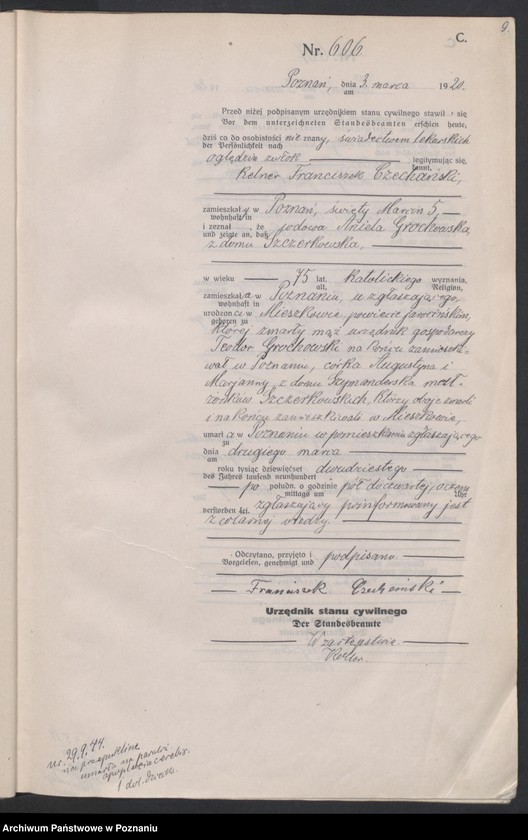 9.
C.
Nr. 606
Poznań, dnia 3. marca 1920.
am
Przed niżej podpisanym urzędnikiem stanu cywilnego stawił się
Vor dem unterzeichneten Standesbeamten erschien heute,
dziś co do osobistości nie znany, świadectwem lekarskich
der Persönlichkeit nach
oględzin zwłok legitymując się,
kannt,
Kelner Franciszek Czechański,
zamieszkały w Poznań, święty Marcin 5,
wohnhaft in
i zeznał, że wdowa Aniela Grochowska
und zeigte an, daß
z domu Szczerkowska,
w wieku 75 lat, katolickiego wyznania,
alt, Religion,
zamieszkała w Poznaniu, u zgłaszającego,
wohnhaft in
urodzona w Mieszkowie, powiecie jarocińskim,
geboren zu
której zmarły mąż urzędnik gospodarczy
Teodor Grochowski na końcu zamieszki-
wał w Poznaniu, córka Augustyna i
Marjanny z domu Szymanderska mał-
żonków Szczerkowskich, którzy oboje zmarli
i na końcu zamieszkiwali w Mieszkowie,
umarła w Poznaniu w pomieszkaniu zgłaszającego
zu
dnia drugiego marca
am
roku tysiąc dziewięćset dwudziestego
des Jahres tausend neunhundert
po połudn. o godzinie pół do czwartej, o czem
mittags um Uhr
zgłaszający poinformowany jest
verstorben sei.
z własnej wiedzy.
Odczytano, przyjęto i podpisano
Vorgelesen, genehmigt und
Franciszek Czechański
Urzędnik stanu cywilnego
Der Standesbeamte
W zastępstwie
ur. 29.9.44.
umarła na
1 dol.
Archiwum Państwowe w Poznaniu